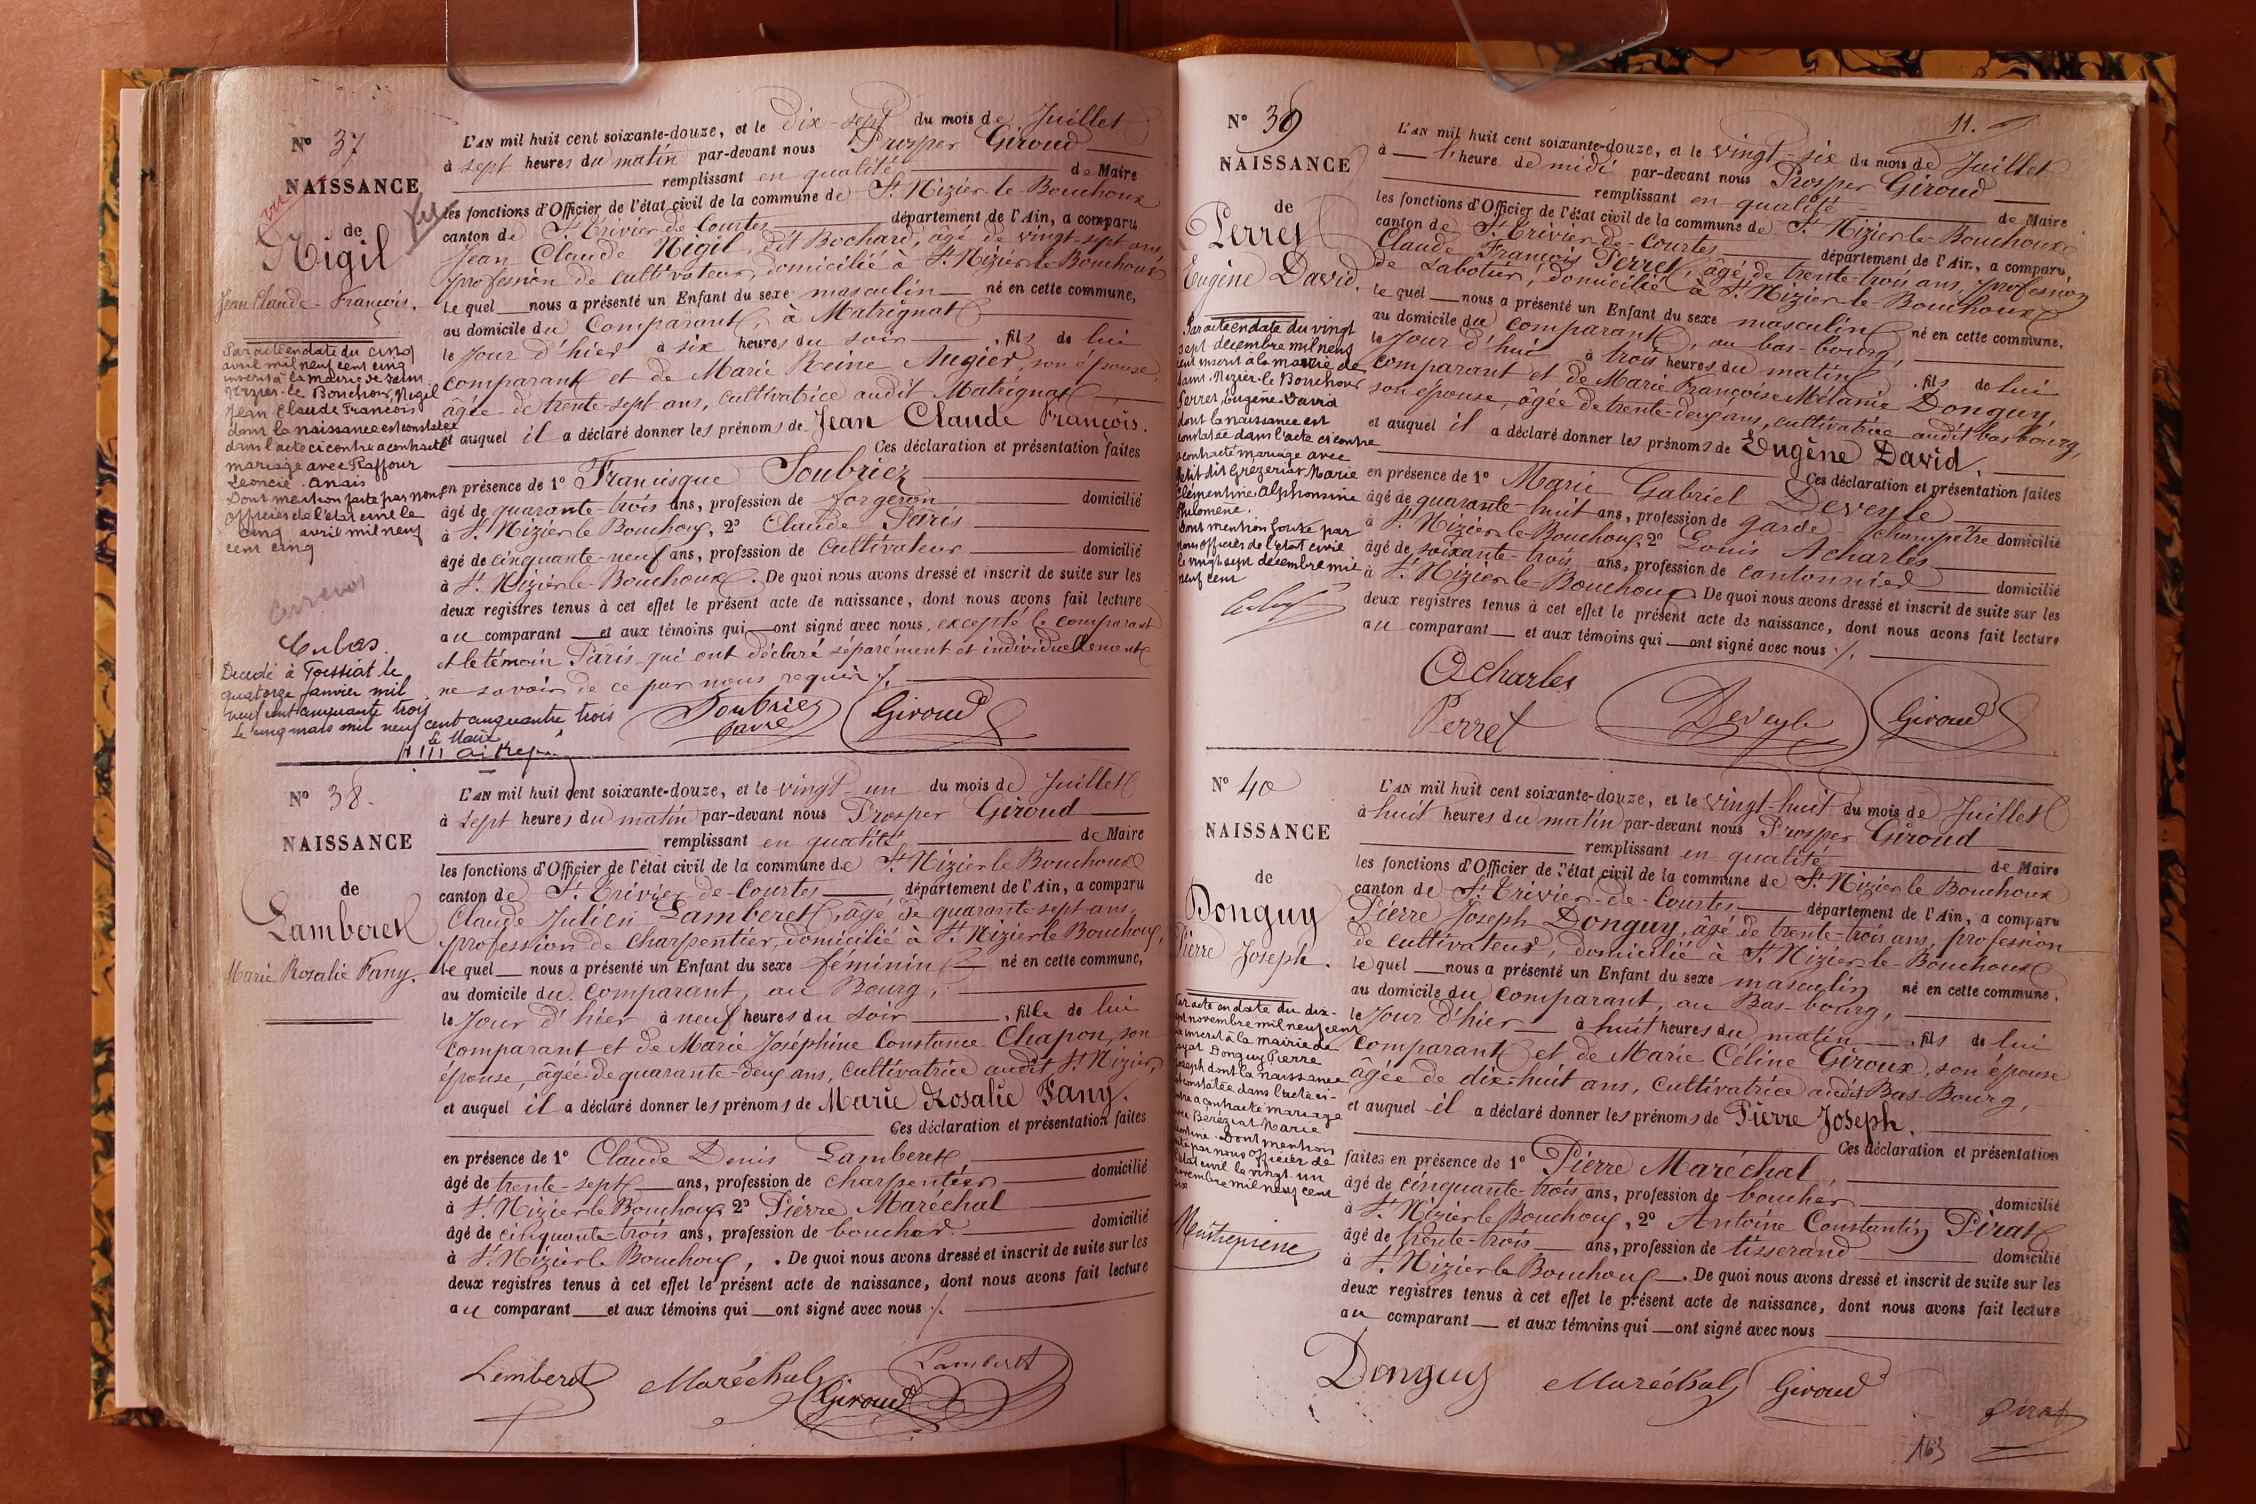 N° 37
NAISSANCE
vu
de
Nigil
Jean Claude François.
Par acte en date du cinq
avril mil neuf cent cinq
inscrit à la mairie de Saint
Nizier-le Bouchoux, Nigil
Jean Claude François
dont la naissance est constatée
dans l'acte ci contre a contracté
mariage avec Raffour
Léoncie Anais
Dont mention faite par nous
officier de l'état civil le
cinq avril mil neuf
cent cinq
Décédé à Foissiat le
quatorze janvier mil
neuf cent cinquante trois
le cinq mars mil neuf cent cinquante trois
le Maire
L'AN mil huit cent soixante-douze, et le dix-sept du mois de Juillet
à sept heures du matin par-devant nous Prosper Giroud
remplissant en qualité de Maire
les fonctions d'Officier de l'état civil de la commune de St Nizier le Bouchoux
canton de St Trivier de Courtes département de l'Ain, a comparu
Jean Claude Nigil, dit Bochard, âgé de vingt-sept ans,
profession de cultivateur, domicilié à St Nizier le Bouchoux
lequel nous a présenté un Enfant du sexe masculin né en cette commune,
au domicile du Comparant, à Matrignat
le Jour d'hier à six heures du soir, fils de lui
comparant et de Marie Reine Augier, son épouse,
âgée de trente-sept ans, cultivatrice audit Matrignat
et auquel il a déclaré donner les prénoms de Jean Claude François.
Ces déclaration et présentation faites
en présence de 1° Francisque Soubriez
âgé de quarante-trois ans, profession de forgeron domicilié
à St Nizier le Bouchoux, 2° Claude Pâris
âgé de cinquante-neuf ans, profession de cultivateur domicilié
à St Nizier le Bouchoux. De quoi nous avons dressé et inscrit de suite sur les
deux registres tenus à cet effet le présent acte de naissance, dont nous avons fait lecture
au comparant et aux témoins qui ont signé avec nous, excepté le comparant
et le témoin Pâris qui ont déclaré séparément et individuellement
ne savoir de ce par nous requis ./.
Giroud
N° 38.
NAISSANCE
de
Lamberet
Marie Rosalie Fany.
L'AN mil huit cent soixante-douze, et le vingt-un du mois de Juillet
à sept heures du matin par-devant nous Prosper Giroud
remplissant en qualité de Maire
les fonctions d'Officier de l'état civil de la commune de St Nizier le Bouchoux
canton de St Trivier-de-Courtes département de l'Ain, a comparu
Claude Julien Lamberet, âgé de quarante-sept ans,
profession de charpentier, domicilié à St Nizier le Bouchoux,
lequel nous a présenté un Enfant du sexe féminin né en cette commune,
au domicile du comparant, au Bourg,
le Jour d'hier à neuf heures du soir, fille de lui
comparant et de Marie Joséphine Constance Chapon, son
épouse, âgée de quarante-deux ans, cultivatrice audit St Nizier,
et auquel il a déclaré donner les prénoms de Marie Rosalie Fany.
Ces déclaration et présentation faites
en présence de 1° Claude Denis Lamberet
âgé de trente-sept ans, profession de charpentier domicilié
à St Nizier le Bouchoux, 2° Pierre Maréchal
âgé de cinquante-trois ans, profession de boucher domicilié
à St Nizier le Bouchoux, . De quoi nous avons dressé et inscrit de suite sur les
deux registres tenus à cet effet le présent acte de naissance, dont nous avons fait lecture
au comparant et aux témoins qui ont signé avec nous ./.
Lamberet Maréchal Giroud Lamberet
11.
N° 39
NAISSANCE
de
Perret
Eugène David.
Par acte en date du vingt
sept décembre mil neuf
cent inscrit à la mairie de
Saint-Nizier-le Bouchoux
Perret, Eugène David
dont la naissance est
constatée dans l'acte ci contre
a contracté mariage avec
Petit dit Grézeriat, Marie
Clémentine Alphonsine
Philomène.
Dont mention faite par
nous officier de l'état civil
le vingt sept décembre mil
neuf cent
L'AN mil huit cent soixante-douze, et le vingt-six du mois de Juillet
à l'heure de midi par-devant nous Prosper Giroud
remplissant en qualité de Maire
les fonctions d'Officier de l'état civil de la commune de St Nizier le Bouchoux
canton de St Trivier-de-Courtes département de l'Ain, a comparu,
Claude François Perret, âgé de trente-trois ans, profession
de Sabotier, domicilié à St Nizier-le-Bouchoux
lequel nous a présenté un Enfant du sexe masculin né en cette commune,
au domicile du comparant, au bas-bourg,
le Jour d'hui à trois heures du matin, fils de lui
comparant et de Marie Françoise Mélanie Donguy,
son épouse, âgée de trente-deux ans, cultivatrice audit bas bourg,
et auquel il a déclaré donner les prénoms de Eugène David.
Ces déclaration et présentation faites
en présence de 1° Marie Gabriel Deveyle
âgé de quarante-huit ans, profession de garde-champêtre domicilié
à St Nizier le Bouchoux 2° Louis Acharles
âgé de soixante-trois ans, profession de cantonnier domicilié
à St Nizier-le-Bouchoux De quoi nous avons dressé et inscrit de suite sur les
deux registres tenus à cet effet le présent acte de naissance, dont nous avons fait lecture
au comparant et aux témoins qui ont signé avec nous ./.
Acharles
Perret Deveyle Giroud
N° 40
NAISSANCE
de
Donguy
Pierre Joseph.
L'AN mil huit cent soixante-douze, et le vingt-huit du mois de Juillet
à huit heures du matin par-devant nous Prosper Giroud
remplissant en qualité de Maire
les fonctions d'Officier de l'état civil de la commune de St Nizier le Bouchoux
canton de St Trivier-de-Courtes département de l'Ain, a comparu
Pierre Joseph Donguy, âgé de trente-trois ans, profession
de cultivateur, domicilié à St Nizier-le-Bouchoux
lequel nous a présenté un Enfant du sexe masculin né en cette commune,
au domicile du comparant, au Bas-bourg,
le Jour d'hier à huit heures du matin, fils de lui
comparant et de Marie Céline Giroux, son épouse
âgée de dix-huit ans, cultivatrice audit Bas-Bourg,
et auquel il a déclaré donner les prénoms de Pierre Joseph.
Ces déclaration et présentation
faites en présence de 1° Pierre Maréchal
âgé de cinquante-trois ans, profession de boucher domicilié
à St Nizier le Bouchoux, 2° Antoine Constantin Pirat
âgé de trente-trois ans, profession de tisserand domicilié
à St Nizier le Bouchoux. De quoi nous avons dressé et inscrit de suite sur les
deux registres tenus à cet effet le présent acte de naissance, dont nous avons fait lecture
au comparant et aux témoins qui ont signé avec nous
Donguy Maréchal Giroud
Pirat
163